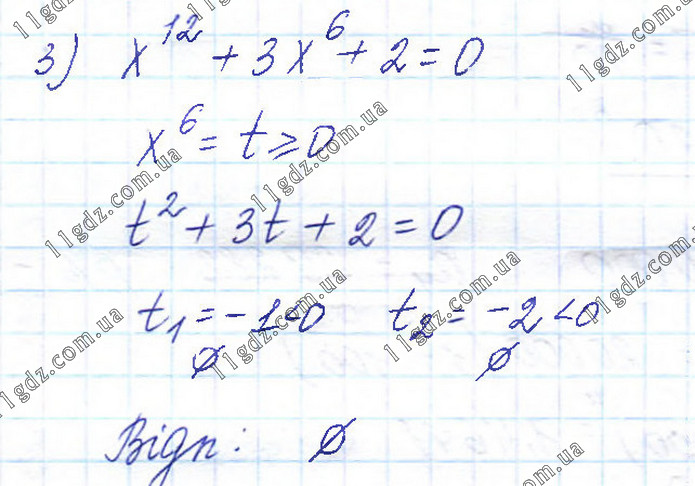 3) x¹² + 3x⁶ + 2 = 0
x⁶ = t ≥ 0
t² + 3t + 2 = 0
t₁ = -1 < 0 t₂ = -2 < 0
∅ ∅
Відп: ∅
11gdz.com.ua
11gdz.com.ua
11gdz.com.ua
11gdz.com.ua
11gdz.com.ua
11gdz.com.ua
11gdz.com.ua
11gdz.com.ua
11gdz.com.ua
11gdz.com.ua